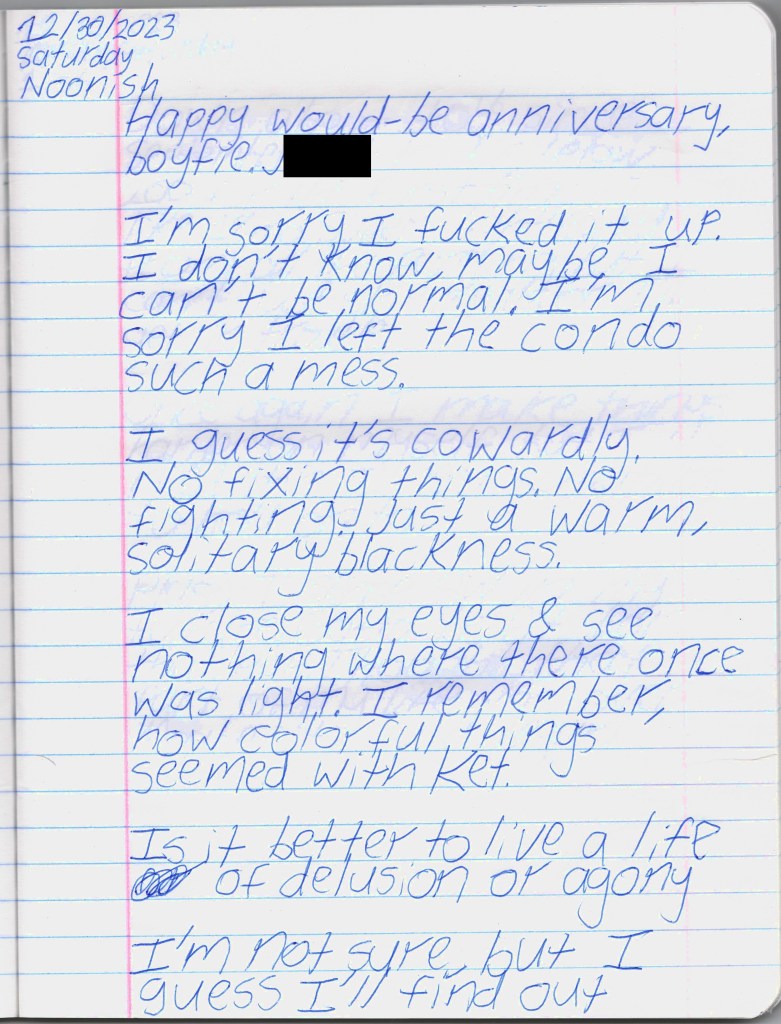 12/30/2023
Saturday
Noonish
Happy would-be anniversary,
boyfie. J
I'm sorry I fucked it up.
I don't know, maybe I
can't be normal. I'm
sorry I left the condo
such a mess.
I guess it's cowardly.
No fixing things. No
fighting. Just a warm,
solitary blackness.
I close my eyes & see
nothing where there once
was light. I remember,
how colorful things
seemed with Ket.
Is it better to live a life
of delusion or agony
I'm not sure, but I
guess I'll find out